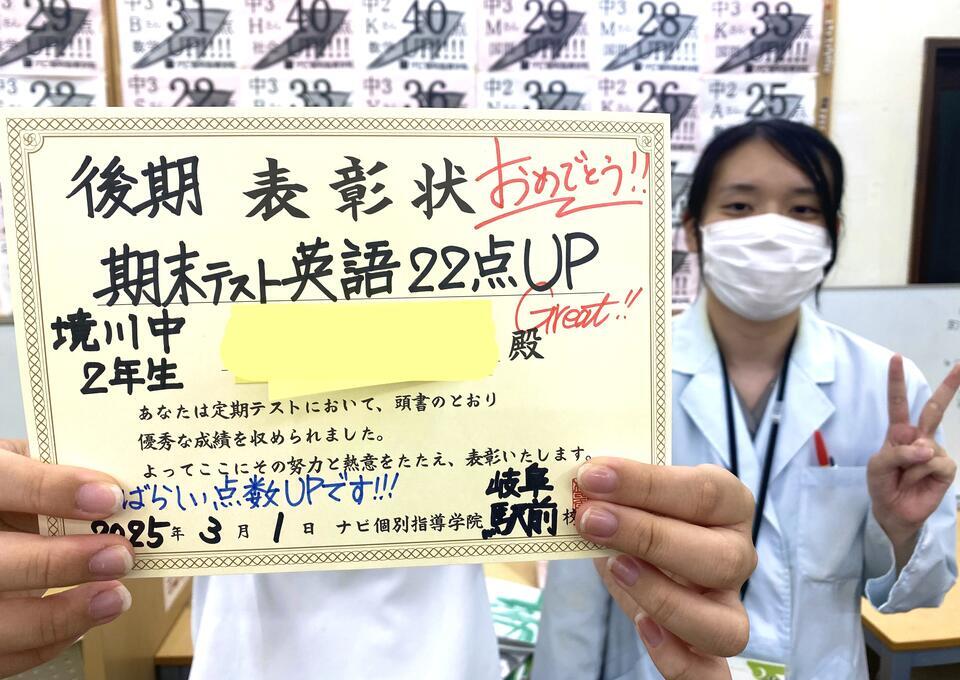 中3 29
中3 31
中3 40
中2 40
中3 29
中3 28
中3 33
中3
中3
中3
中2
中2
中2 26
中2 25
後期 表彰状 おめでとう!!
期末テスト英語22点UP
Great!!
境川中
2年生
殿
あなたは定期テストにおいて、頭書のとおり
優秀な成績を収められました。
よってここにその努力と熱意をたたえ、表彰いたします。
ばらしい点数UPです!!!
2025年 3月 1日 ナビ個別指導学院 岐阜駅前校